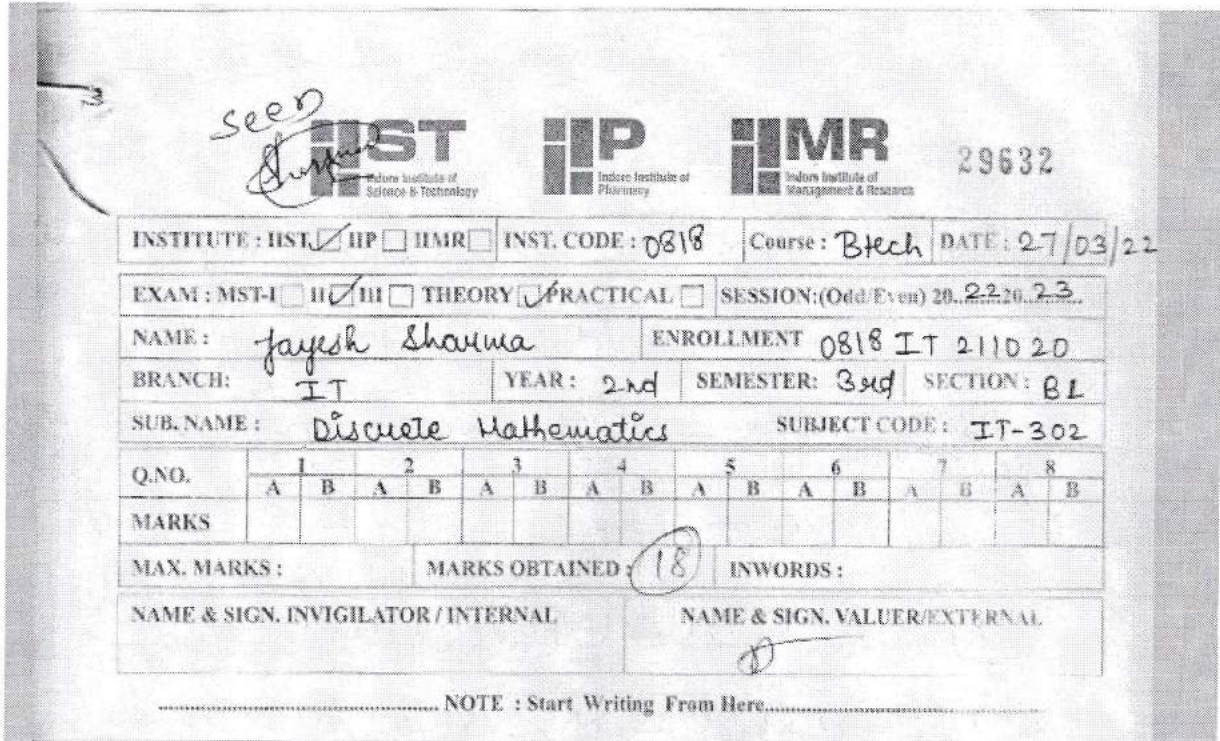 seen
IIST IIP IIMR 29632
Indore Institute of Science & Technology Indore Institute of Pharmacy Indore Institute of Management & Research
INSTITUTE : IIST ☑ IIP ☐ IIMR ☐ INST. CODE : 0818 Course : Btech DATE : 27/03/22
EXAM : MST-I ☐ II ☑ III ☐ THEORY ☑ PRACTICAL ☐ SESSION:(Odd/Even) 20..22.20..23..
NAME : Jayesh Sharma ENROLLMENT 0818 IT 211020
BRANCH: IT YEAR : 2nd SEMESTER: 3rd SECTION :
SUB. NAME : Discrete Mathematics SUBJECT CODE : IT-302
Q.NO. 1 2 3 4 5 6 7 8
A B A B A B A B A B A B A B A B
MARKS
MAX. MARKS : MARKS OBTAINED : 18 INWORDS :
NAME & SIGN. INVIGILATOR / INTERNAL NAME & SIGN. VALUER/EXTERNAL
NOTE : Start Writing From Here